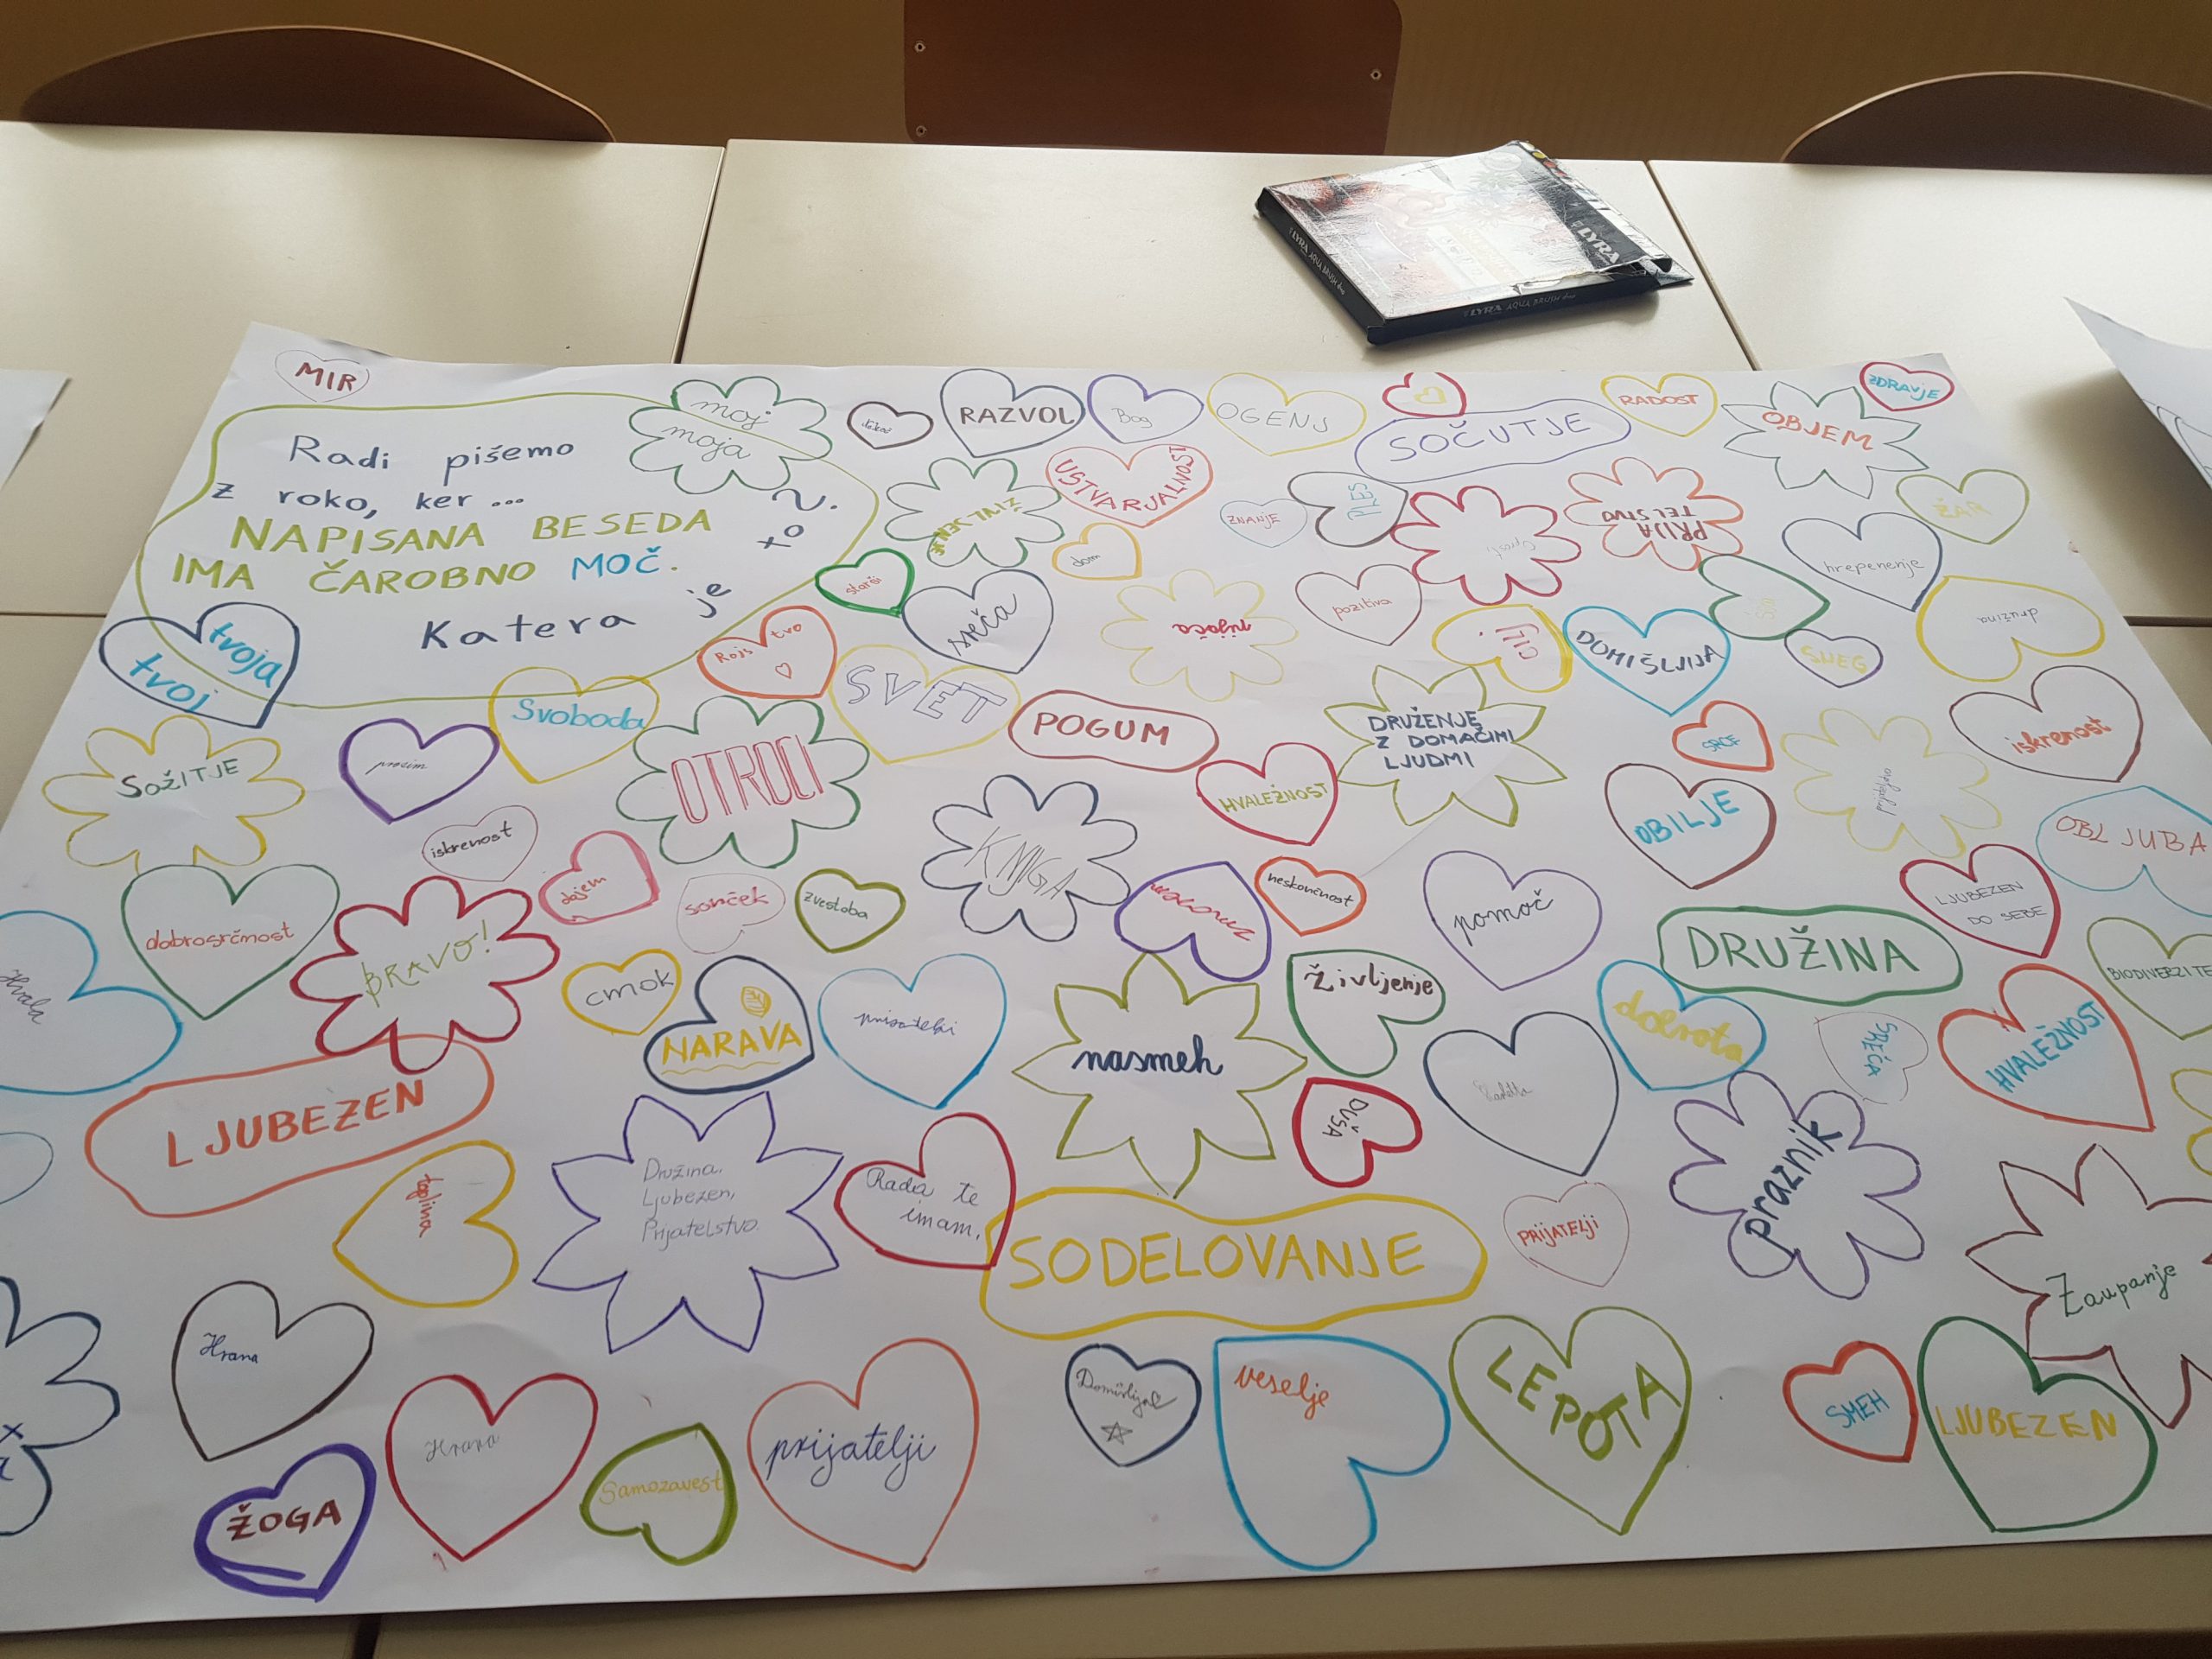 LYRA
LYRA AQUA BRUSH duo
LYRA AQUA BRUSH duo
MIR
Radi pišemo
z roko, ker ...
NAPISANA BESEDA
IMA ČAROBNO MOČ.
Katera je to?
moj
moja
RAZVOJ
Bog
OGENJ
SOČUTJE
RADOST
OBJEM
ZDRAVJE
USTVARJALNOST
ZNANJE
PLES
PRIJA
TELSTVO
ŽAR
dom
starši
sreča
pozitiva
hrepenenje
družina
tvoja
tvoj
Rojs tvo
SVET
DOMIŠLJIJA
SNEG
Svoboda
POGUM
DRUŽENJE
Z DOMAČIMI
LJUDMI
SRCE
iskrenost
SOŽITJE
prosim
OTROCI
HVALEŽNOST
OBILJE
OBLJUBA
iskrenost
KNJIGA
objem
sonček
zvestoba
neskončnost
pomoč
LJUBEZEN
DO SEBE
dobrosrčnost
BRAVO!
DRUŽINA
Hvala
cmok
NARAVA
nasmeh
Življenje
dobrota
SREČA
HVALEŽNOST
BIODIVERZITE
LJUBEZEN
DUŠA
praznik
toplina
Družina,
Ljubezen,
Prijateljstvo
Rada te
imam.
SODELOVANJE
PRIJATELJI
Zaupanje
Hrana
Hrana
prijatelji
veselje
LEPOTA
SMEH
LJUBEZEN
ŽOGA
Samozavest